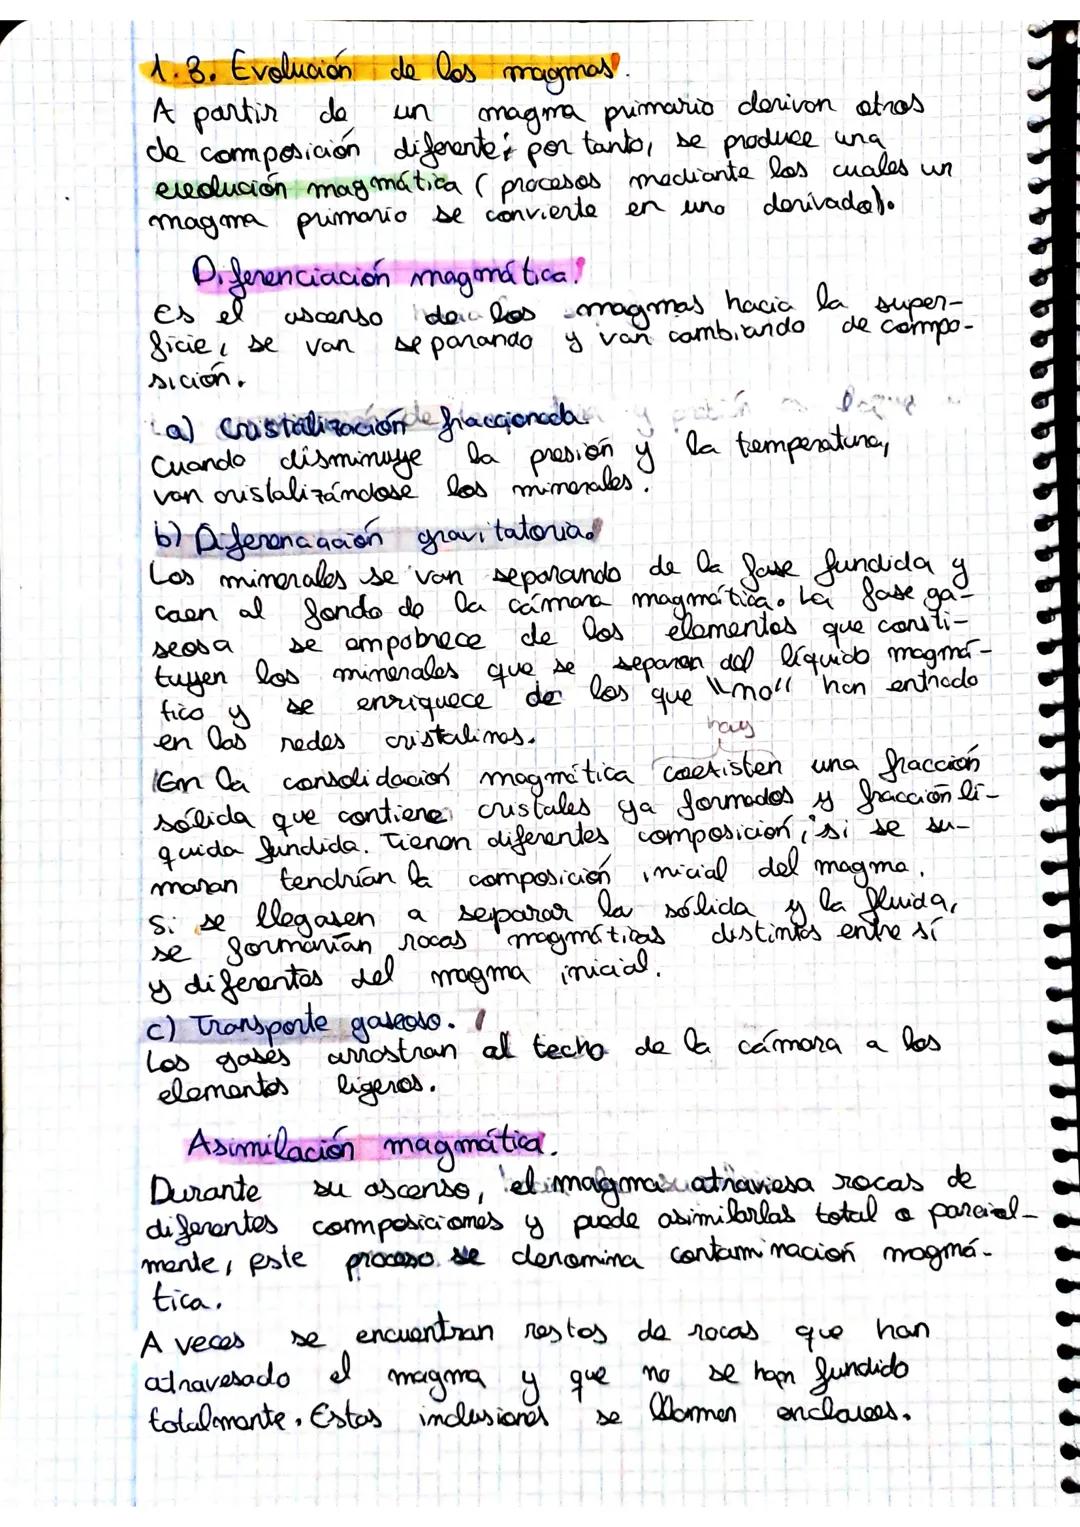 1.3. Evolución de los magmas.
A partir de un magma primario derivan otros
de composición diferente; por tanto, se produce una
evolución magmática (procesos mediante los cuales un
magma primario se convierte en uno derivado).
Diferenciación magmática.
Es el ascenso de los magmas hacia la super-
ficie, se van separando y van cambiando de compo-
sición.
a) Cristalización fraccionada
Cuando disminuye la presión y la temperatura,
van cristalizándose los minerales.
b) Diferenciación gravitatoria.
Los minerales se van separando de la fase fundida y
caen al fondo de la cámara magmática. La fase ga-
seosa se empobrece de los elementos que consti-
tuyen los minerales que se separan del líquido magmá-
tico y se enriquece de los que "no" han entrado
en las redes cristalinas.
hay
En la consolidación magmática coexisten una fracción
sólida que contiene cristales ya formados y fracción lí-
quida fundida. Tienen diferentes composición, si se su-
maran tendrían la composición inicial del magma.
Si se llegasen a separar la sólida y la fluida,
se formarían rocas magmáticas distintas entre sí
y diferentes del magma inicial.
c) Transporte gaseoso.
Los gases arrastran al techo de la cámara a los
elementos ligeros.
Asimilación magmática.
Durante su ascenso, el magma atraviesa rocas de
diferentes composiciones y puede asimilarlas total o parcial-
mente, este proceso se denomina contaminación magmá-
tica.
A veces se encuentran restos de rocas que han
atravesado el magma y que no se han fundido
totalmente. Estas inclusiones se llaman enclaves.